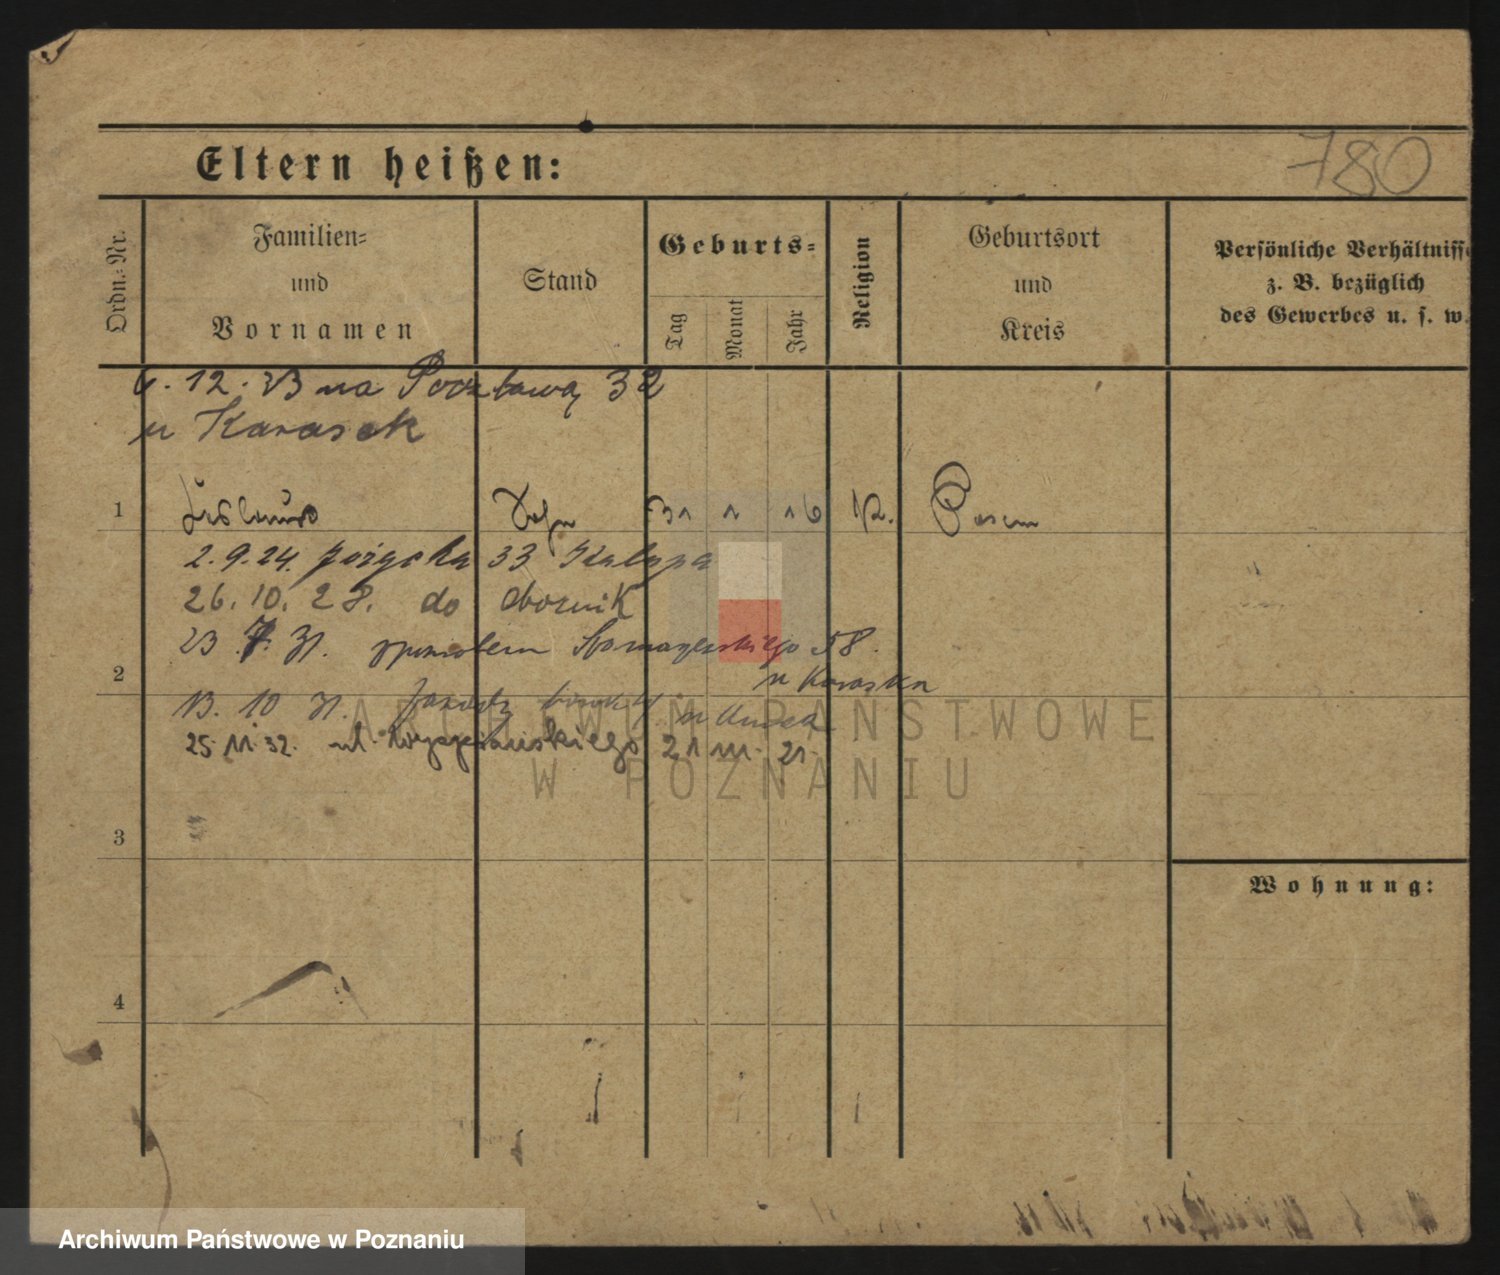 780
Eltern heißen:
Ordn.-Nr.
Familien-
und
Vornamen
Stand
Geburts-
Tag
Monat
Jahr
Religion
Geburtsort
und
Kreis
Persönliche Verhältnisse
z. B. bezüglich
des Gewerbes u. s. w.
6. 12. 33 na Pocztową 32
u Karasek
1 Sohn 31 1 16 Posen
2. 9. 24. 33
26. 10. 28. do Obornik
23 7. 31. 58.
2
u Karaska
13. 10 31.
25. 11. 32. ul. Wyspiańskiego 21 m. 21.
3
Wohnung:
4
ARCHIWUM PAŃSTWOWE
W POZNANIU
Archiwum Państwowe w Poznaniu